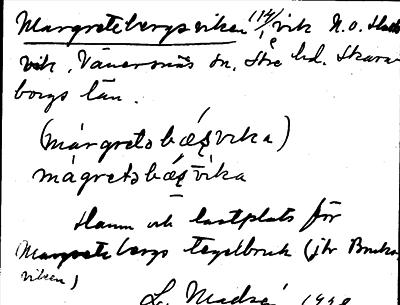 Margretebergsviken 114/1 vik N.O. Slätt
vik. Vänersnäs sn. Åse hd. Skara
borgs län.
(márgretsbæʂvika)
mágretsbæʂvika
Hamn och lastplats för
Margretebergs tegelbruk (jfr Bruks
viken)
L.